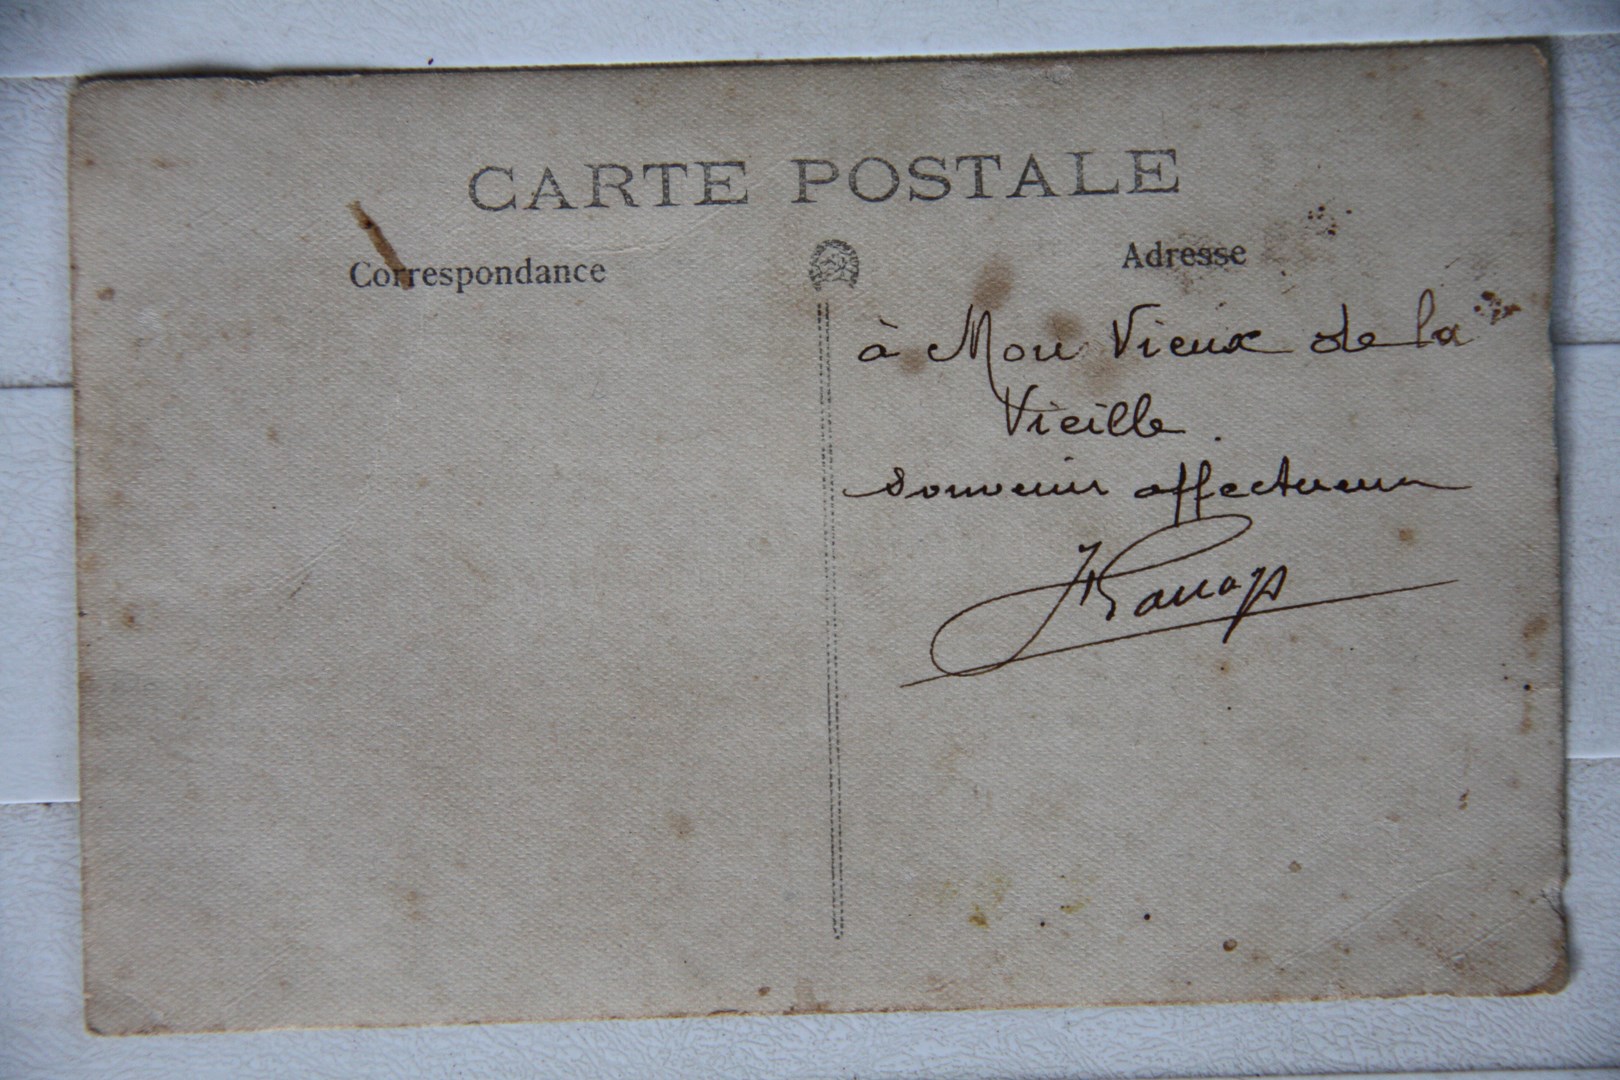 CARTE POSTALE
Correspondance
Adresse
à Mon Vieux de la
Vieille.
souvenir affectueux